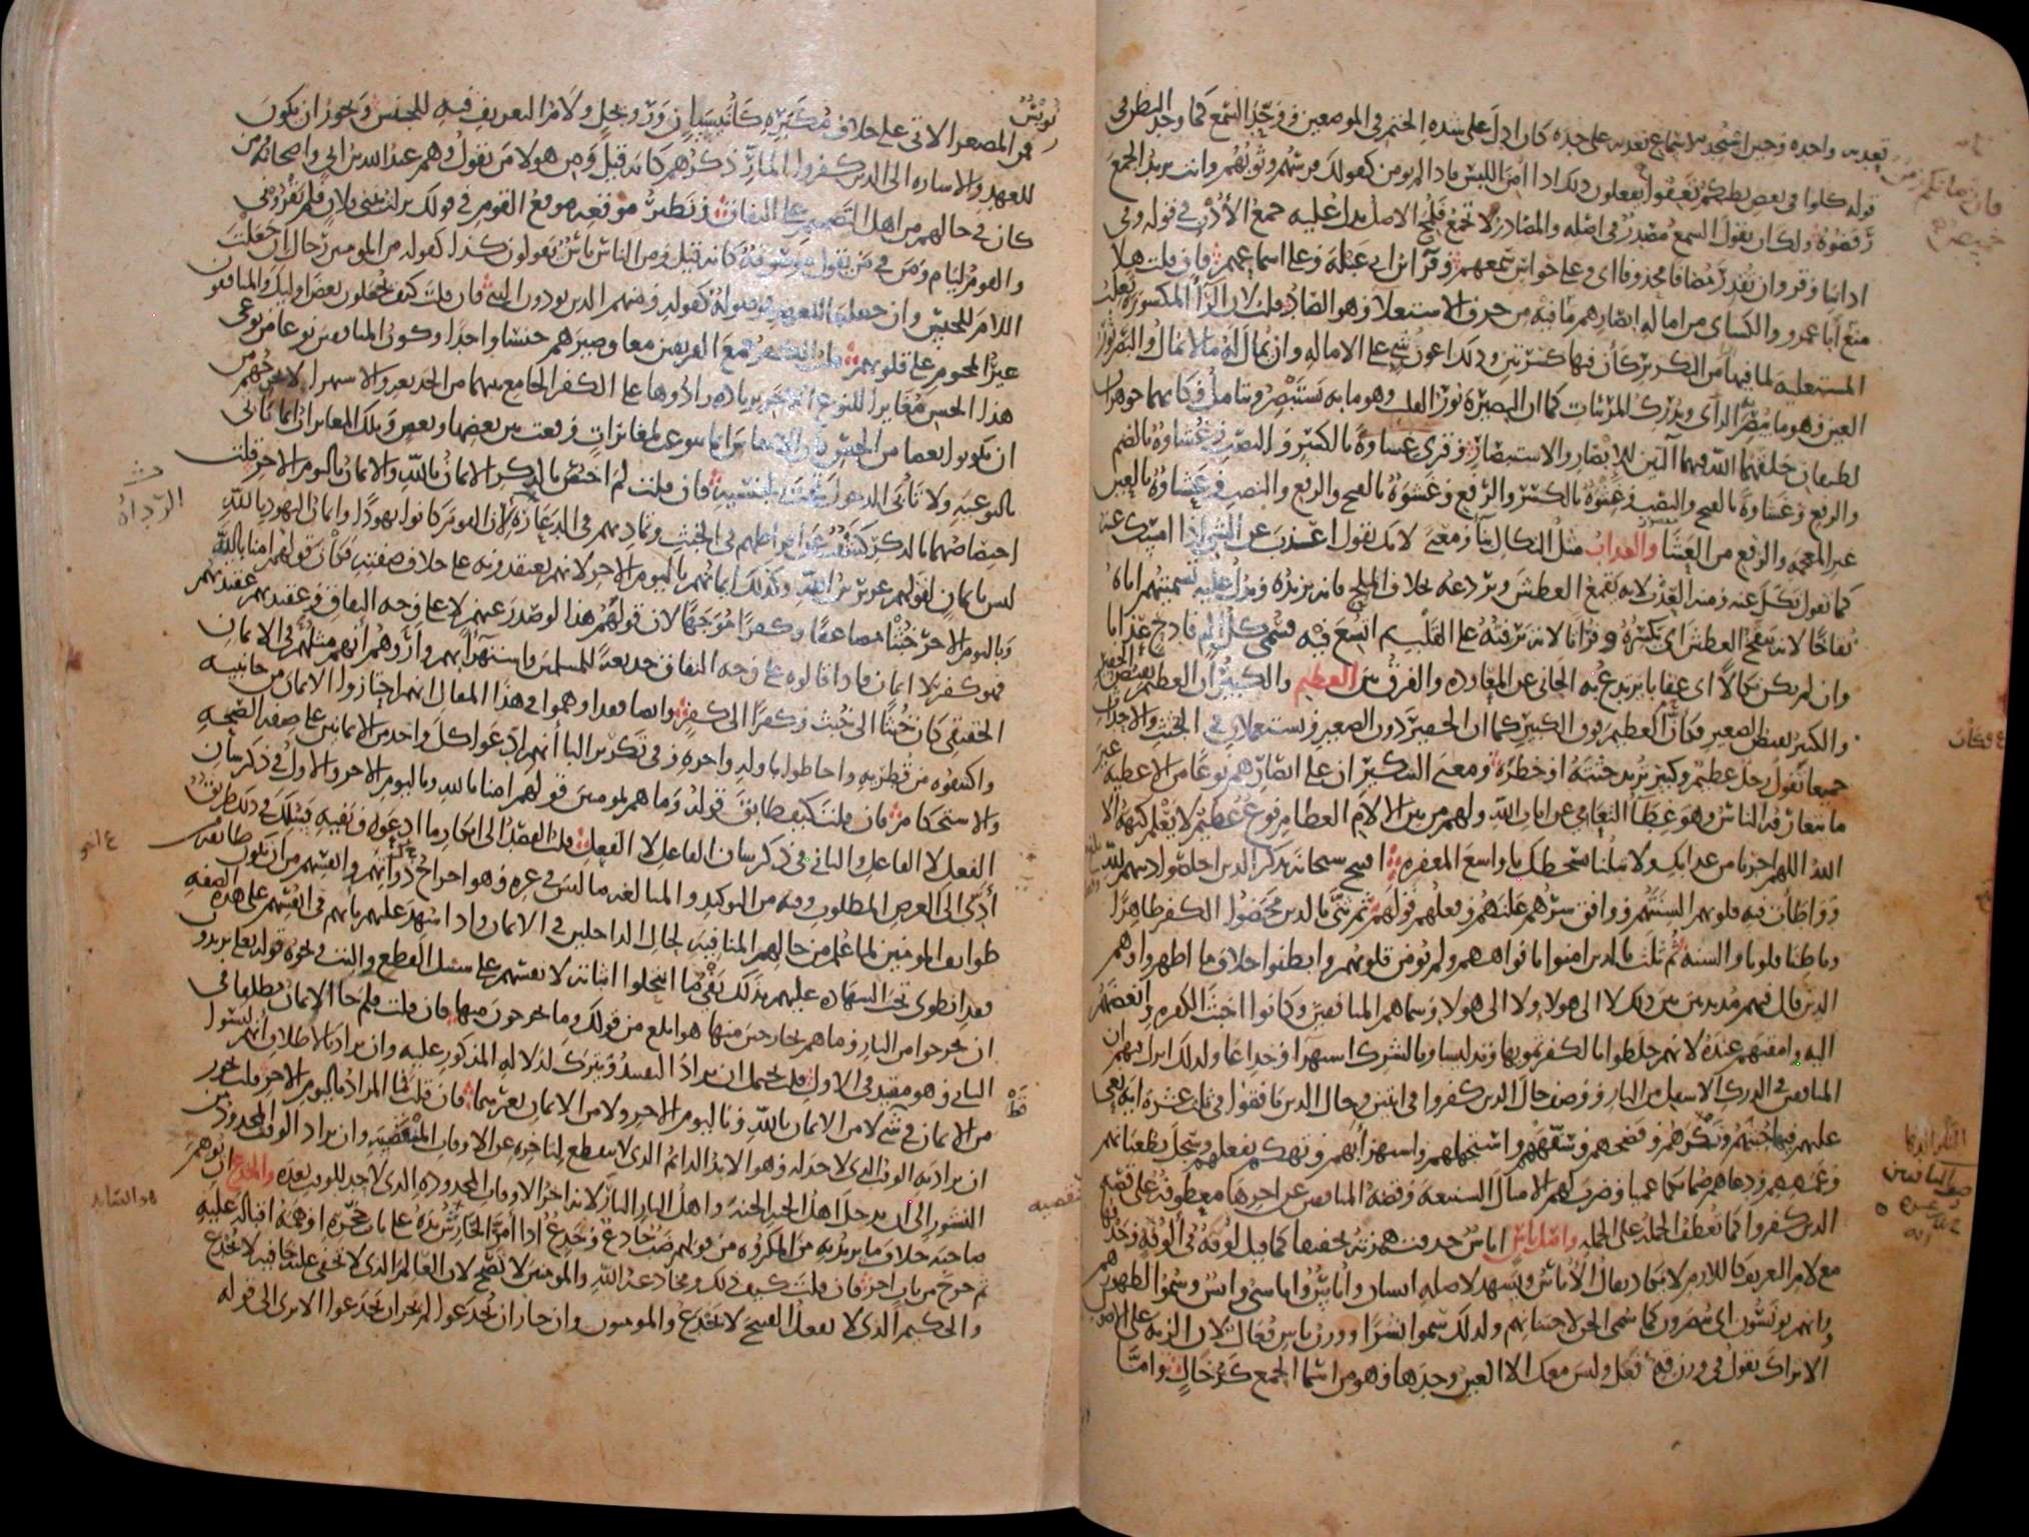 تعديه واحده وحين استجد للاسماع تعديه على حده كان ادل على شده الختم في الموضعين ووحد السمع كما وحد البطن في
قوله كلوا في بعض بطنكم تعفوا يفعلون ذلك اذا امن اللبس فاذا لم يومن كقولك فرسهم وثوبهم وانت تريد الجمع
رفضوه ولك ان تقول السمع مصدر في اصله والمصادر لا تجمع فلمح الاصل يدل عليه جمع الاذن في قوله وفي
اذاننا وقر وان تقدر مضافا محذوفا اي وعلى حواس سمعهم وقرا ابن ابي عبلة وعلى اسماعهم فان قلت هلا
منع ابا عمرو والكسائي من اماله ابصارهم ما فيه من حرف الاستعلا وهو الصاد قلت لان الرا المكسورة تغلب
المستعليه لما فيها من التكرير كان فيها كسرتين وذلك اعون شي على الاماله وان يمال له ما لا يمال والبصر نور
العين وهو ما يبصر به الراي ويدرك المرئيات كما ان البصيرة نور القلب وهو ما به يستبصر ويتامل وكانهما جوهران
لطيفان خلقهما الله فيهما التين للابصار والاستبصار وقرى غشاوة بالكسر والنصب وغشاوة بالضم
والرفع وغشاوة بالفتح والنصب وغشوة بالكسر والرفع وغشوة بالفتح والرفع والنصب وعشاوة بالعين
غير المعجمه والرفع من العشا والعذاب مثل النكال بنا ومعنى لانك تقول اعذب عن الشي اذا امسك عنه
كما تقول نكل عنه ومنه العذب لانه يقمع العطش ويردعه بخلاف الملح فانه يزيده ويدل عليه تسميتهم اياه
نقاخا لانه ينقخ العطش اي يكسره وفراتا لانه يرفته على القلب ثم اتسع فيه فسمي كل الم فادح عذابا
وان لم يكن نكالا اي عقابا يرتدع به الجاني عن المعاوده والفرق بين العظيم والكبير ان العظيم نقيض الحقير
والكبير نقيض الصغير فكان العظيم فوق الكبير كما ان الحقير دون الصغير ويستعملان في الجثث والاحداث
جميعا تقول رجل عظيم وكبير تريد جثته او خطره ومعنى التنكير ان على ابصارهم نوعا من الاغطيه غير
ما يتعارفه الناس وهو غطا التعامي عن ايات الله ولهم من بين الالام العظام نوع عظيم لا يعلم كنهه الا
الله اللهم اجرنا من عذابك ولا تبلنا بسخطك يا واسع المغفره افتتح سبحانه بذكر الذين اخلصوا دينهم لله
وواطات فيه قلوبهم السنتهم ووافق سرهم علنهم وفعلهم قولهم ثم ثنى بالذين محضوا الكفر ظاهرا
وباطنا قلوبا والسنة ثم ثلث بالذين امنوا بافواههم ولم تومن قلوبهم وابطنوا خلاف ما اظهروا وهم
الذين قال فيهم مذبذبين بين ذلك لا الى هولا ولا الى هولا وسماهم المنافقين وكانوا اخبث الكفره وابغضهم
اليه وامقتهم عنده لانهم خلطوا بالكفر تمويها وتدليسا وبالشرك استهزا وخداعا ولذلك انزل فيهم ان
المنافقين في الدرك الاسفل من النار ووصف حال الذين كفروا في ايتين وحال الذين نافقوا في ثلث عشرة اية نعى
عليهم فيها خبثهم ونكرهم وفضحهم وسفههم واستجهلهم واستهزا بهم وتهكم بفعلهم وسجل بطغيانهم
وعمههم ودعاهم صما بكما عميا وضرب لهم الامثال الشنيعه وقصة المنافقين عن اخرها معطوفة على قصه
الذين كفروا كما تعطف الجملة على الجمله واصل ناس اناس حذفت همزته تخفيفا كما قيل لوقة في الوقة وحذفها
مع لام التعريف كاللازم لا يكاد يقال الاناس ويشهد لاصله انسان واناس واناسي وانس وسموا لظهورهم
وانهم يونسون اي يبصرون كما سمي الجن لاجتنانهم ولذلك سموا بشرا ووزن ناس فعال لان الزنه على الاصول
الا تراك تقول في وزن قه افعل وليس معك الا العين وحدها وهو من اسما الجمع كرخال واما
نويس
فمن المصغر الاتي على خلاف مكبره كانيسيان ورويجل ولام التعريف فيه للجنس ويجوز ان يكون
للعهد والاشاره الى الذين كفروا المار ذكرهم كانه قيل ومن هولا من يقول وهم عبد الله بن ابي واصحابه ومن
كان في حالهم من اهل التصميم على النفاق ونظير موقعه موقع القوم في قولك نزلت ببني فلان فلم يقروني
والقوم ليام ومن في من يقول موصوفة كانه قيل ومن الناس ناس يقولون كذا كقوله من المومنين رجال ان جعلت
اللام للجنس وان جعلتها للعهد فموصولة كقوله ومنهم الذين يوذون النبي فان قلت كيف يجعلون بعض اوليك والمنافقون
غير المختوم على قلوبهم قلت الكفر جمع الفريقين معا وصيرهم جنسا واحدا وكون المنافقين نوعا من نوعي
هذا الجنس مغايرا للنوع الاخر بزيادة زادوها على الكفر الجامع بينهما من الخديعه والاستهزا لا يخرجهم من
ان يكونوا بعضا من الجنس فان الاجناس انما تنوعت لمغايرات وقعت بين بعضها وبعض وتلك المغايرات انما تاتي
بالنوعيه ولا تابى الدخول تحت الجنسيه فان قلت لم اختص بالذكر الايمان بالله والايمان باليوم الاخر قلت
اختصاصهما بالذكر كشف عن افراطهم في الخبث وتماديهم في الدعارة لان القوم كانوا يهودا وايمان اليهود بالله
ليس بايمان لقولهم عزير ابن الله وكذلك ايمانهم باليوم الاخر لانهم يعتقدونه على خلاف صفته فكان قولهم امنا بالله
وباليوم الاخر خبثا مضاعفا وكفرا موجها لان قولهم هذا لو صدر عنهم لا على وجه النفاق وعقيدتهم عقيدتهم
فهو كفر لا ايمان فاذا قالوه على وجه النفاق خديعة للمسلمين واستهزا بهم واروهم انهم مثلهم في الايمان
الحقيقي كان خبثا الى خبث وكفرا الى كفر وايضا فقد اوهموا في هذا المقال انهم اختاروا الايمان من جانبيه
واكتنفوه من قطريه واحاطوا باوله واخره وفي تكرير البا انهم ادعوا كل واحد من الايمانين على صفه الصحه
والاستحكام فان قلت كيف طابق قوله وما هم بمومنين قولهم امنا بالله وباليوم الاخر والاول في ذكر شان
الفعل لا الفاعل والثاني في ذكر شان الفاعل لا الفعل قلت القصد الى انكار ما ادعوه ونفيه فسلك في ذلك طريق
ادى الى الغرض المطلوب وفيه من التوكيد والمبالغه ما ليس في غيره وهو اخراج ذواتهم وانفسهم من ان تكون طايفه من
طوايف المومنين لما علم من حالهم المنافيه لحال الداخلين في الايمان واذا شهد عليهم بانهم في انفسهم على هذه الصفه
فقد انطوى تحت الشهاده عليهم بذلك نفي ما انتحلوا اثباته لانفسهم على سبيل القطع والبت ونحوه قوله تعالى يريدون
ان يخرجوا من النار وما هم بخارجين منها هو ابلغ من قولك وما يخرجون منها فان قلت فلم جا الايمان مطلقا في
الثاني وهو مقيد في الاول قلت يحتمل ان يراد التقييد ويترك لدلاله المذكور عليه وان يراد بالاطلاق انهم ليسوا
من الايمان في شي لا من الايمان بالله وباليوم الاخر ولا من الايمان بغيرهما فان قلت ما المراد باليوم الاخر قلت يجوز
ان يراد به الوقت الذي لا حد له وهو الابد الدايم الذي لا ينقطع لتاخره عن الاوقات المنقضيه وان يراد الوقت المحدود من
النشور الى ان يدخل اهل الجنه الجنه واهل النار النار لانه اخر الاوقات المحدوده الذي لا حد للوقت بعده والخدع ان يوهم
صاحبه خلاف ما يريد به من المكروه من قولهم ضب خادع وخدع اذا امر الحارش يده على باب جحره اوهمه اقباله عليه
ثم خرج من باب اخر فان قلت كيف ذلك ومخادعه الله والمومنين لا تصح لان العالم الذي لا تخفى عليه خافيه لا يخدع
والحكيم الذي لا يفعل القبيح لا يخدع والمومنون وان جاز ان يخدعوا لم يجز ان يخدعوا الا ترى الى قوله